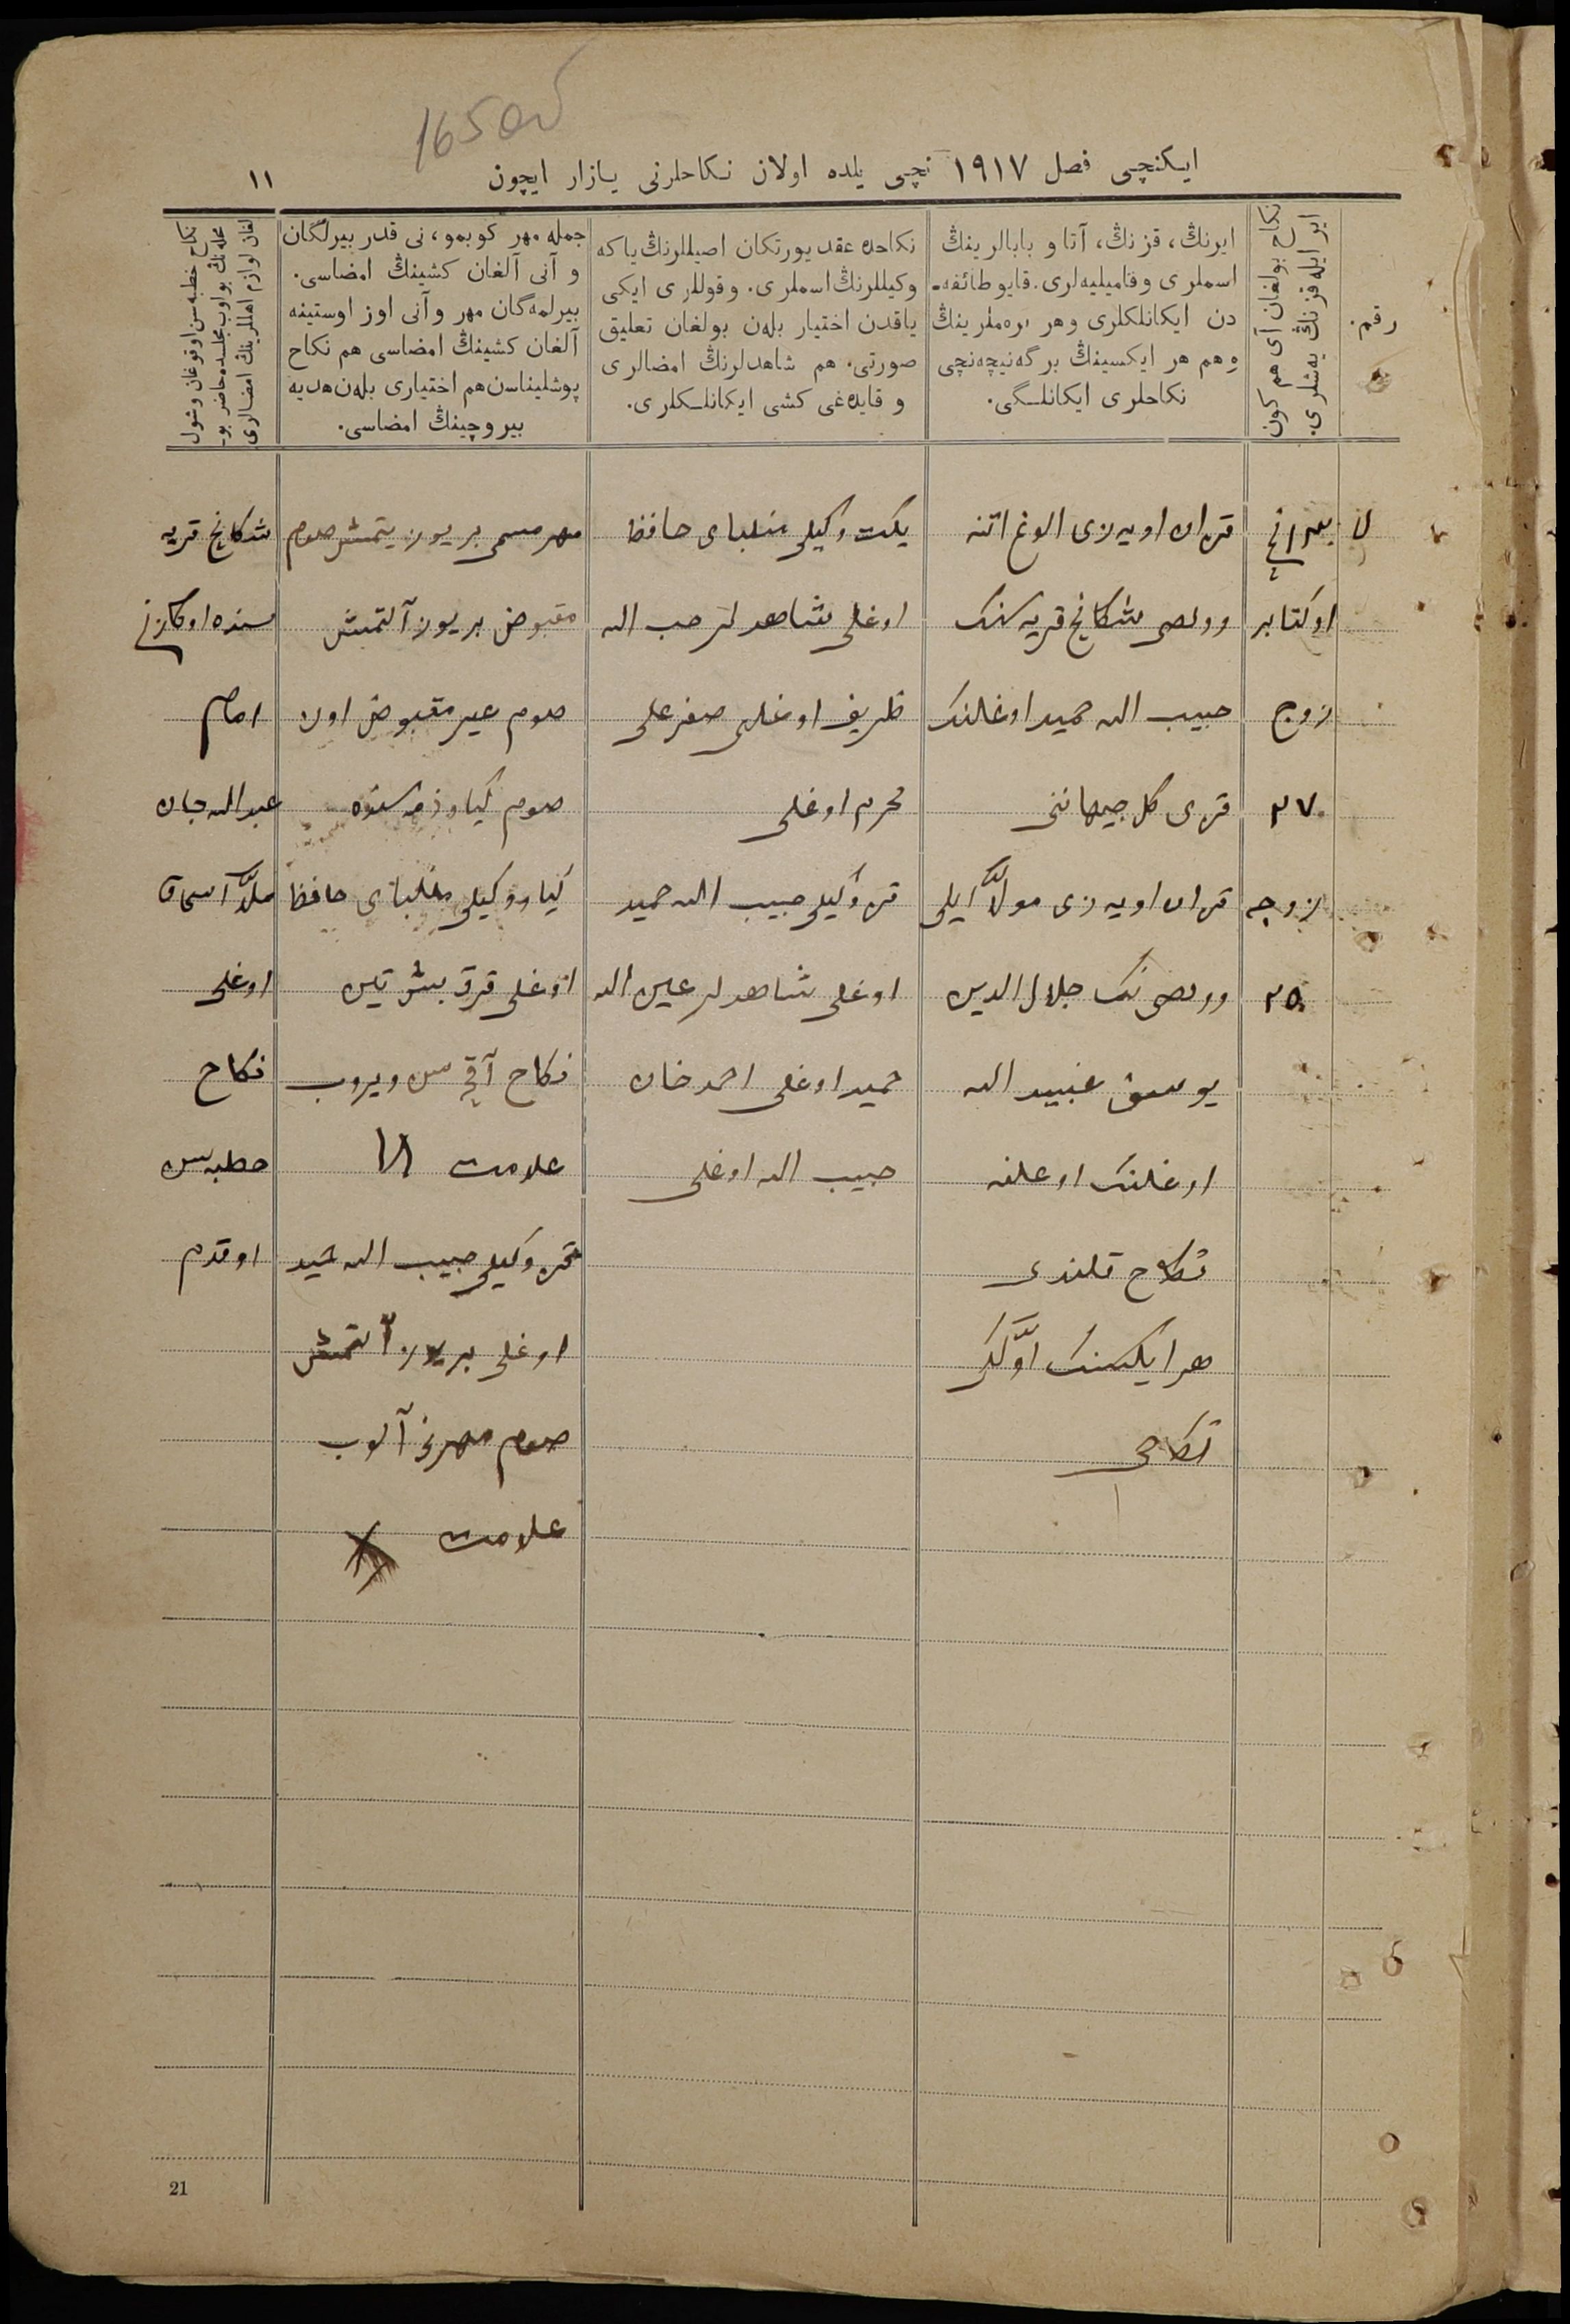 165 об
ایكنچی فصل ١٩١٧ نچی یلده اولان نكاحلرنی یازار ایچون
١١
رقم.
نكاح بولغان آی هم كون
ایر ایله قزنڭ یه‌شلری.
ایرنڭ، قزنڭ، آتا و بابالرینڭ
اسملری وفامیلیه‌لری. قایو طائفه‌-
دن ایكانلكلری وهر
و هم هر ایكسینڭ برگه نیچه‌نچی
نكاحلری ایكانلـگی.
نكاحده عقد یورتكان اصیللرنڭ یا كه
وكیللرنڭ اسملری. وقوللری ایكی
یاقدن اختیار بله‌ن بولغان تعلیق
صورتی. هم شاهدلرنڭ امضالری
و قایده‌غی كشی ایكانلـكلری.
جمله مهر كوبمو، نی قدر بیرلگان
و آنی آلغان كشینڭ امضاسی.
بیرلمه‌گان مهر وآنی اوز اوستینه
آلغان كشینڭ امضاسی هم نكاح
پوشلیناسن هم اختیاری بله‌ن هدیه
بیروچینڭ امضاسی.
نكاح خطبه‌سن اوقوغان وشول
محله‌نڭ بولوب مجلسده حاضر بو-
لغان لوازم اهللرینڭ امضالری
اوكتابر
زوج
٢٧
زوجه
٢٥
قزان اویه‌زی الوغ اتنه
وولصی شكانخ قریه سنك
حبیب الله حمید اوغلنك
قزی كل جیهاننی
قزان اویه‌زی موللا ایلی
وولصی نك جلال الدین
یوسف عبید الله
اوغلنك اوغلنه
نكاح قلندی
هر ایكسنك اوّلگی
نكاحی
یكت وكیلی منلبای حافظ
اوغلی شاهدلر حب الله
ظریف اوغلی صفرعلی
محرم اوغلی
قز وكیلی حبیب الله حمید
اوغلی شاهدلر عین الله
حمید اوغلی احمدخان
حبیب الله اوغلی
مهر مسمی بر یوز یتمش صوم
مقبوض بر یوز آلتمش
صوم غیر مقبوض اون
صوم كیاو ذمه سنده
كیاو وكیلی منلبای حافظ
اوغلی قرق بش تین
نكاح آقچه سن ویروب
علامت
قز وكیلی حبیب الله حمید
اوغلی بر یوز آلتمش
صوم مهرنی آلوب
علامت
شكانخ قریه
سنده اوكازنی
امام
عبدالله جان
ملّا اسحاق
اوغلی
نكاح
خطبه سن
اوقدم
21